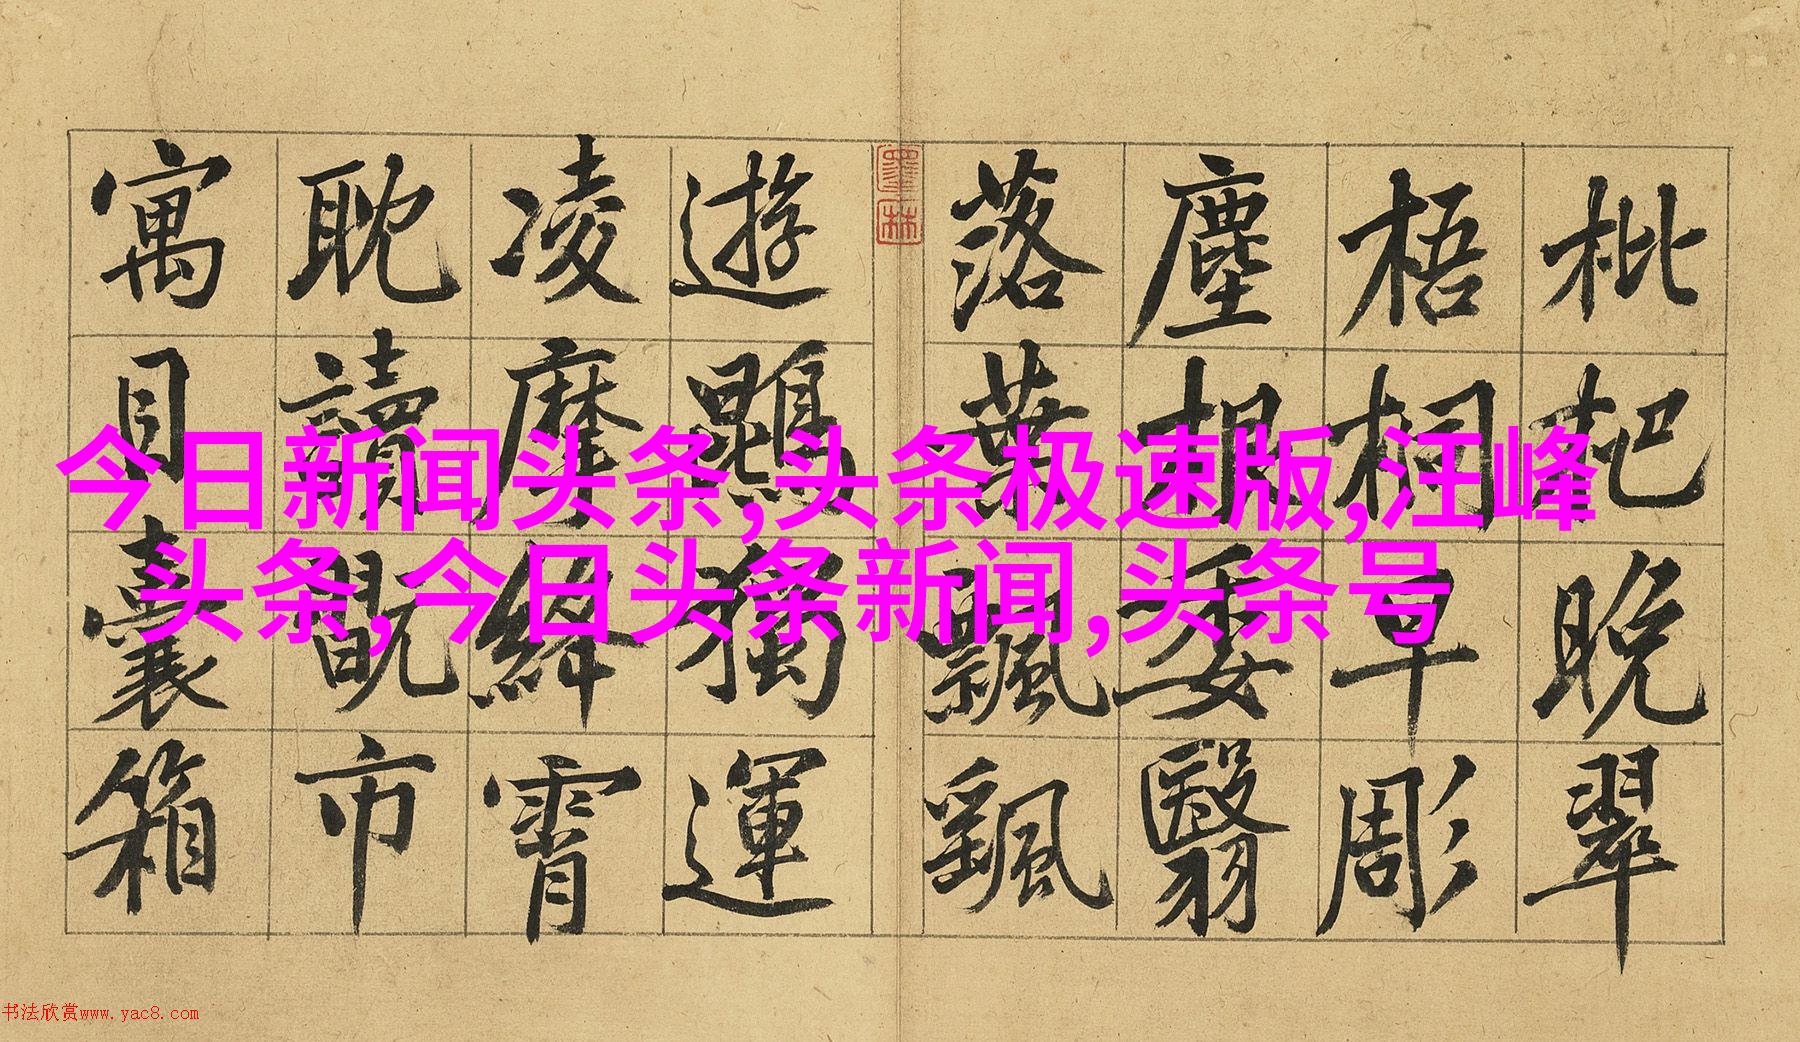 枇杷晚翠
梧桐早彫
塵根委翳
落葉飄颻
墨林
遊鵾獨運
凌摩絳霄
耽讀翫市
寓目囊箱
今日新闻头条,头条极速版,汪峰
头条,今日头条新闻,头条号
书法欣赏www.yac8.com